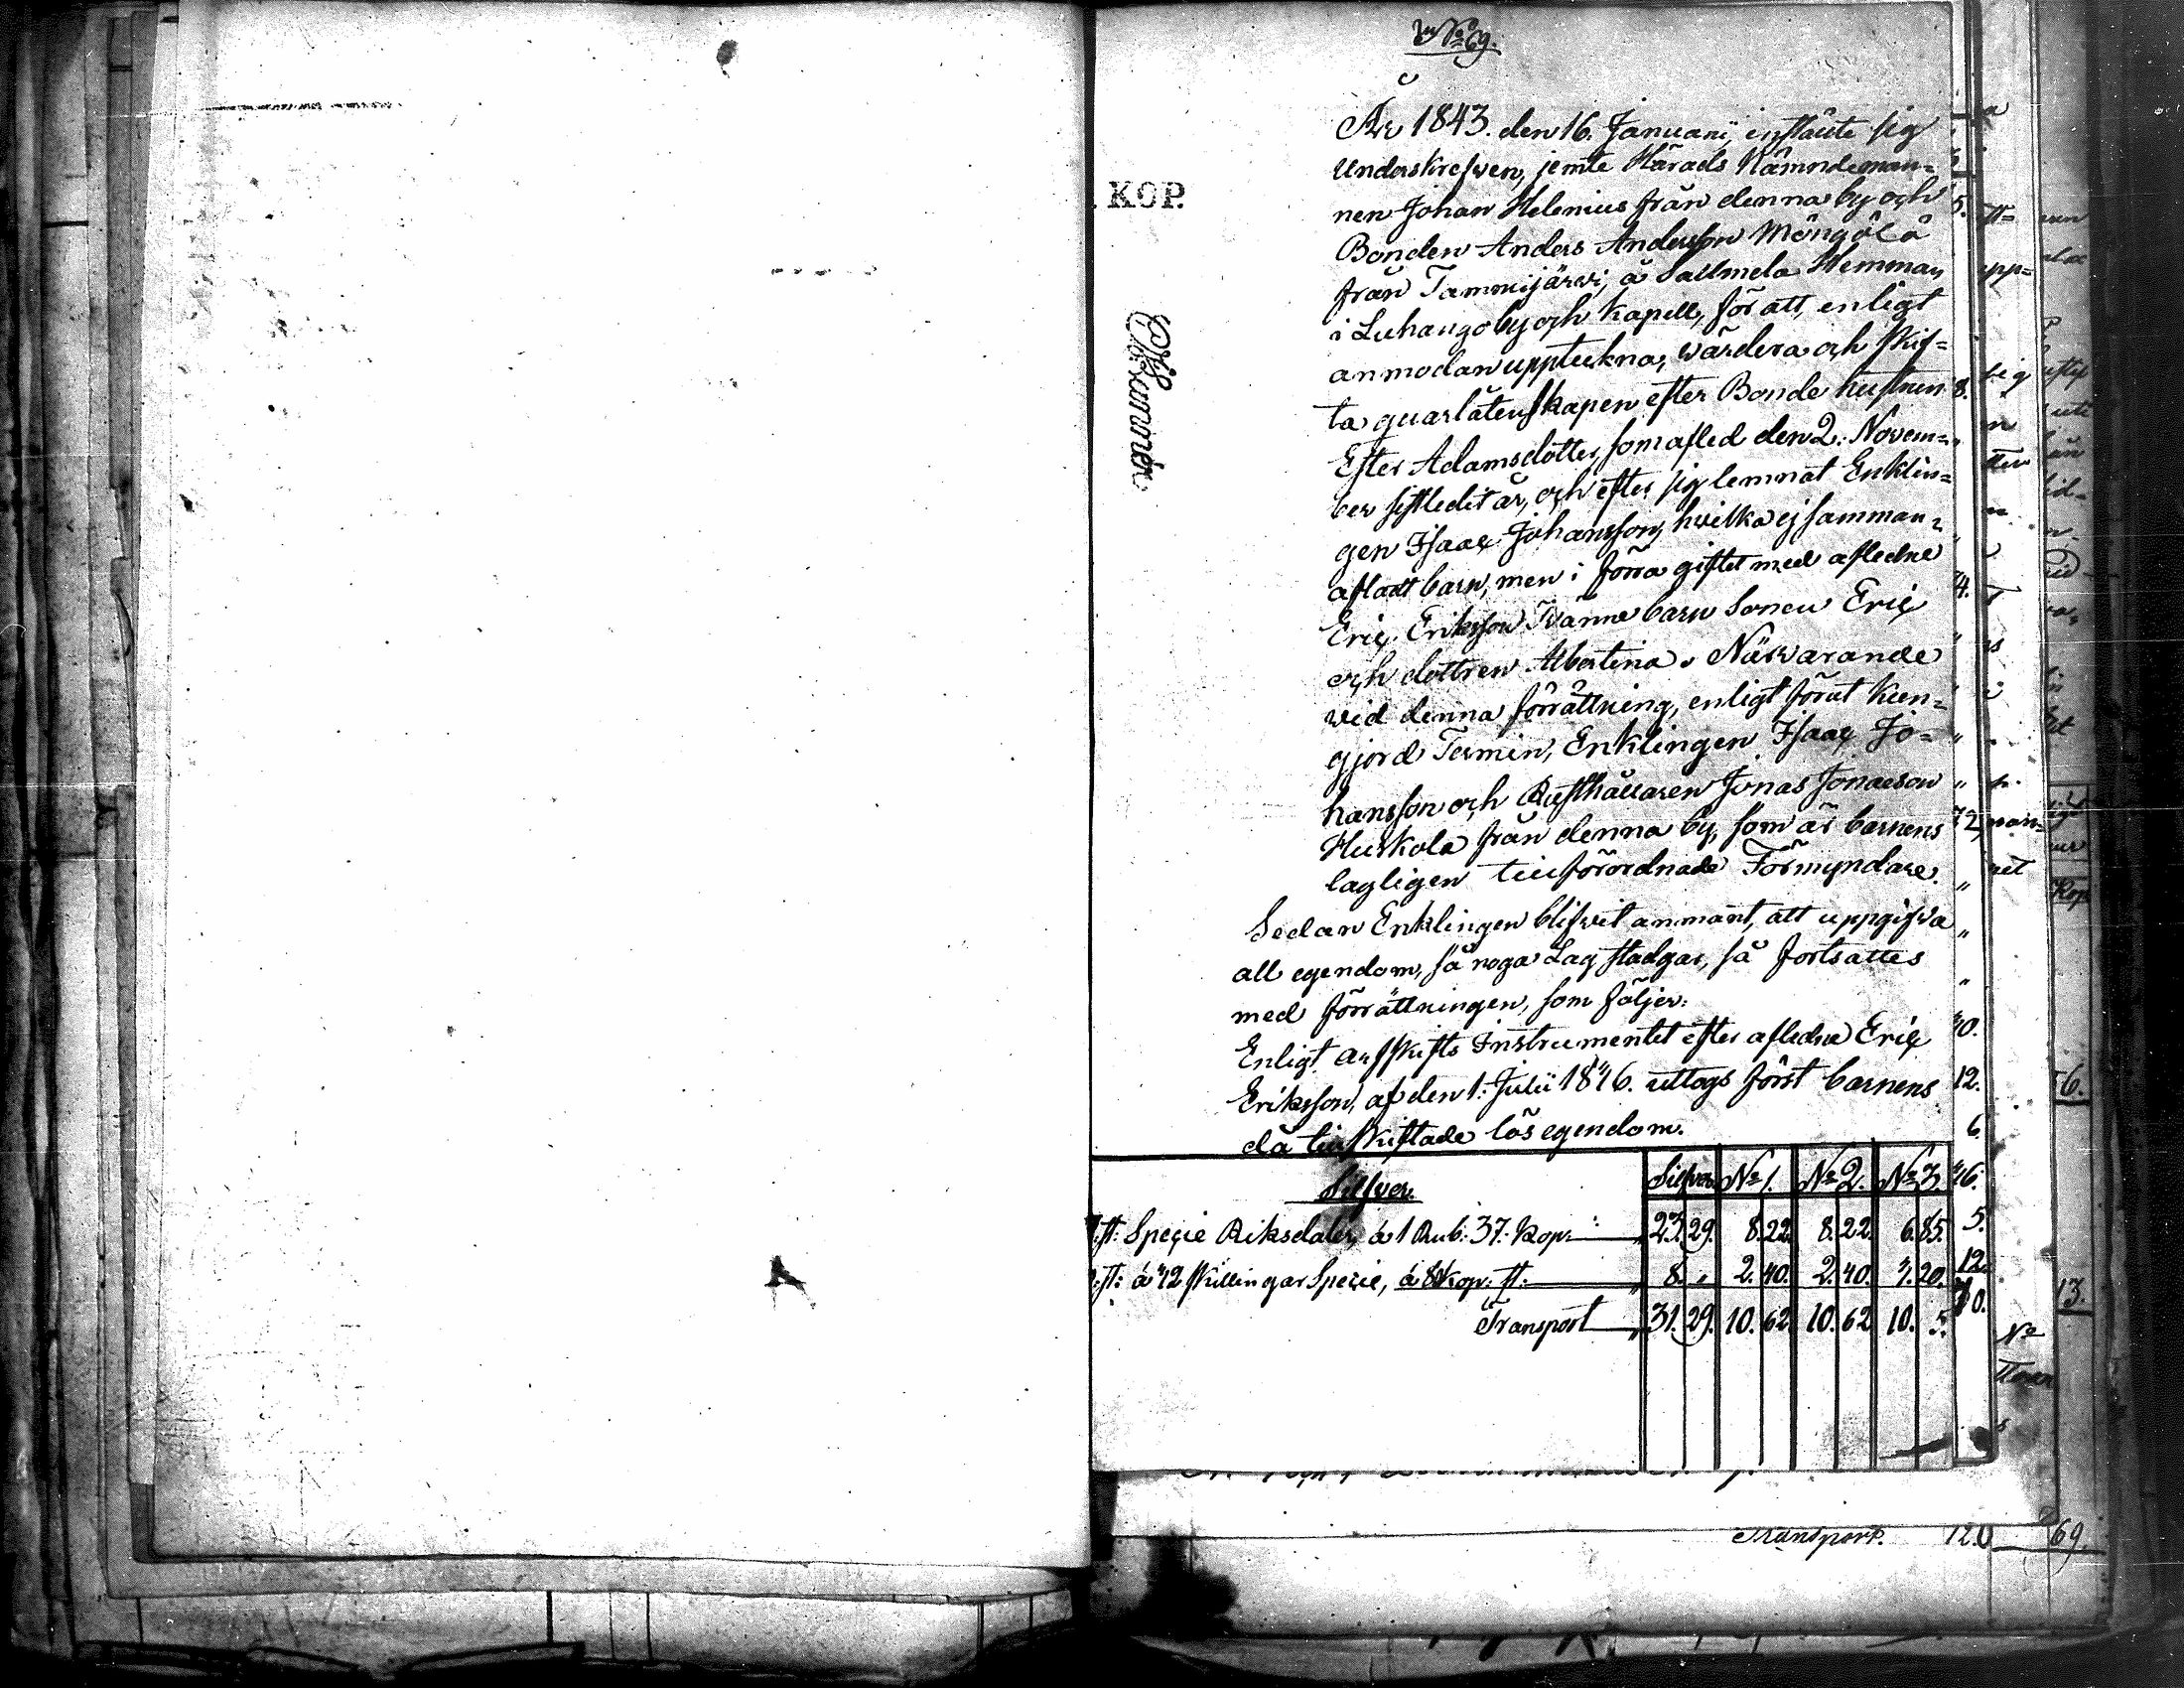 No 69.
År 1843. den 16. Januarii, instälte sig
Underskrefven, jemte Härads Nämndeman=
nen Johan Helenius från denna by och
Bonden Anders Andersson Möngölä
från Tammijärvi, å Sallmela Hemman
i Luhango by och kapell, för att, enligt
anmodan uppteckna, värdera och skif=
ta quarlåtenskapen efter Bonde hustrun
Ester Adamsdotter, som afled den 2. Novem=
ber sistledit år, och efter sig lemnat Enklin=
gen Isaac Johansson, hvilka ej samman=
aflat barn, men i förra giftet med afledne
Eric Eriksson Tvänne barn Sonen Eric
och dottren Albertina. Närvarande
vid denna förrättning, enligt förut kun=
gjord Termin, Enklingen Isaac Jo=
hansson och Rusthållaren Jonas Jonaeson
Hurkola från denna by, som är barnens
lagligen tillförordnade Förmyndare.
Sedan Enklingen blifvit anmant, att uppgifva
all egendom, så noga Lag stadgar, så fortsattes
med förrättningen, som följer:
Enligt arfskifts Instrumentet efter afledne Eric
Eriksson, af den 1: Julii 1846. uttogs först barnens
då tillskiftade lös egendom.
KOP.
Silfver. Silfver No 1. No 2. No 3.
st: Specie Riksdaler, á 1 Rub: 37: Kop: 23. 29. 8. 22. 8. 22. 6. 85.
st: á 12 skillingar Specie, á 8 kop: st: 8. „ 2. 40. 2. 40. 3. 20.
Transport 31. 29. 10. 62. 10. 62. 10. 5.
Transport. 120 69